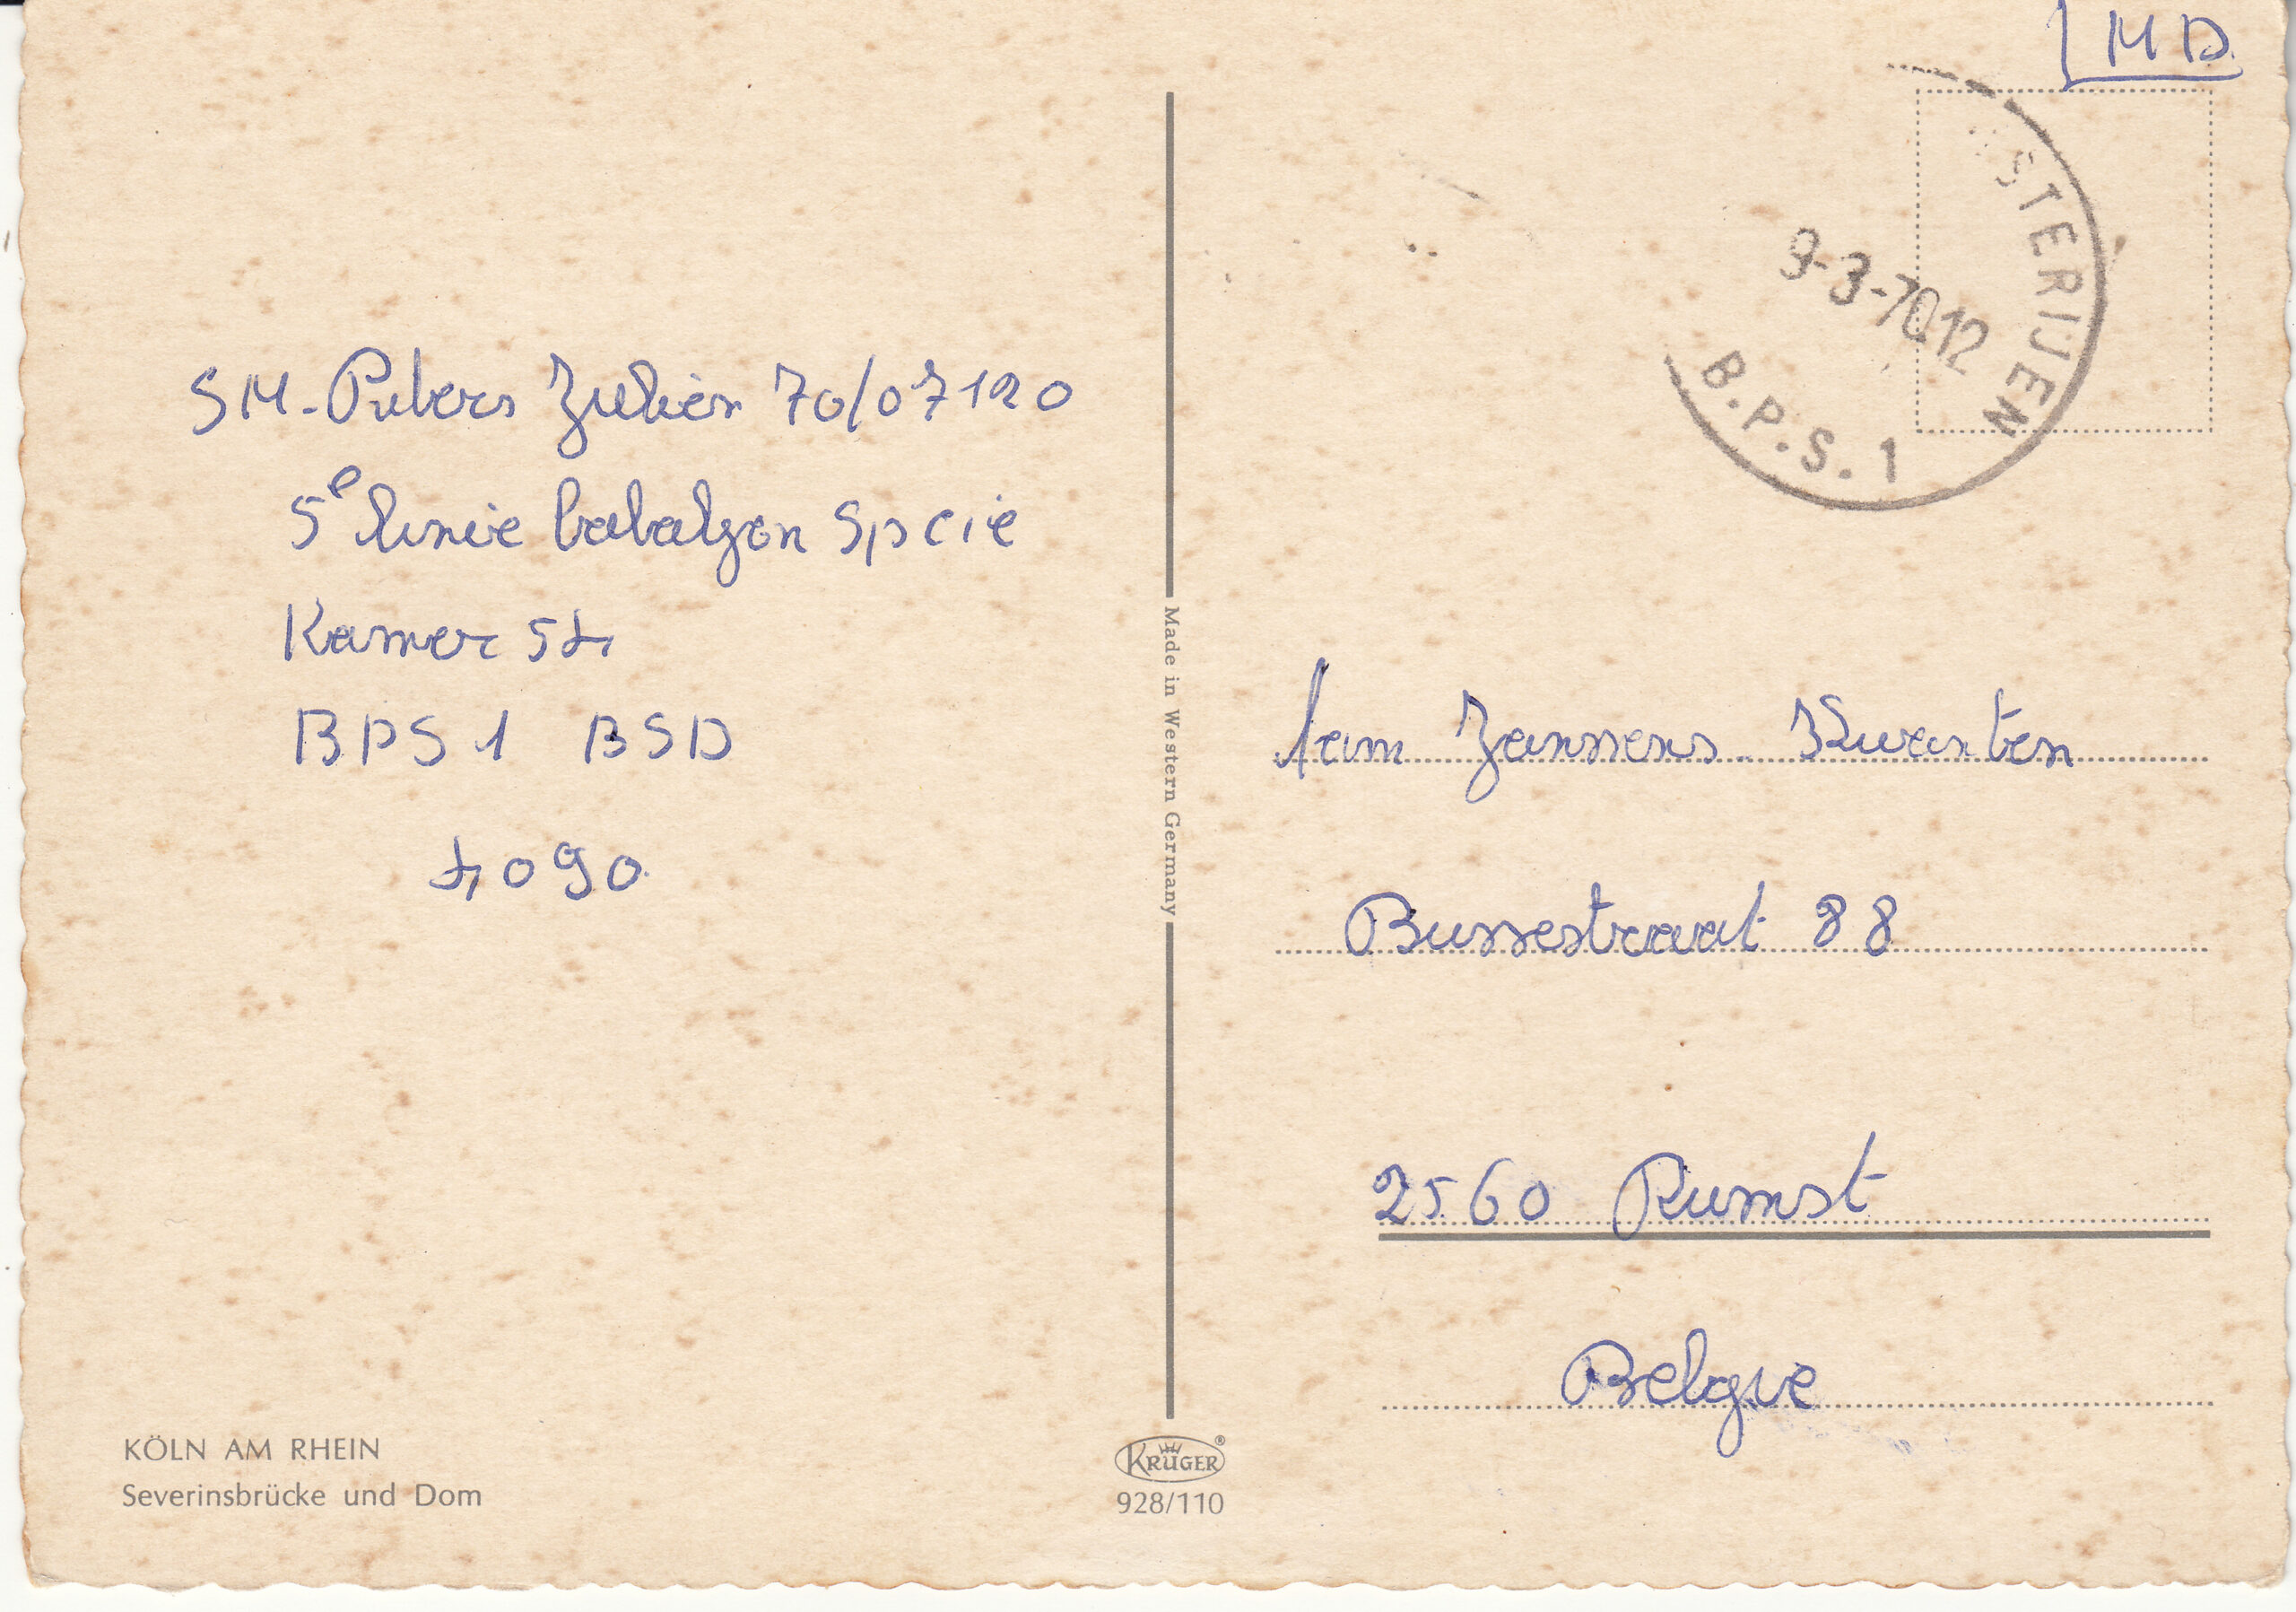 MD
STERIJEN
9-3-70 12
B.P.S. 1
SM. Julien 70/07120
5e linie bataljon Sp cie
Kamer 54
BPS 1 BSD
4090
Made in Western Germany
fam Janssens
Bussestraat 88
2560 Rumst
Belgie
KÖLN AM RHEIN
Severinsbrücke und Dom
KRÜGER
928/110